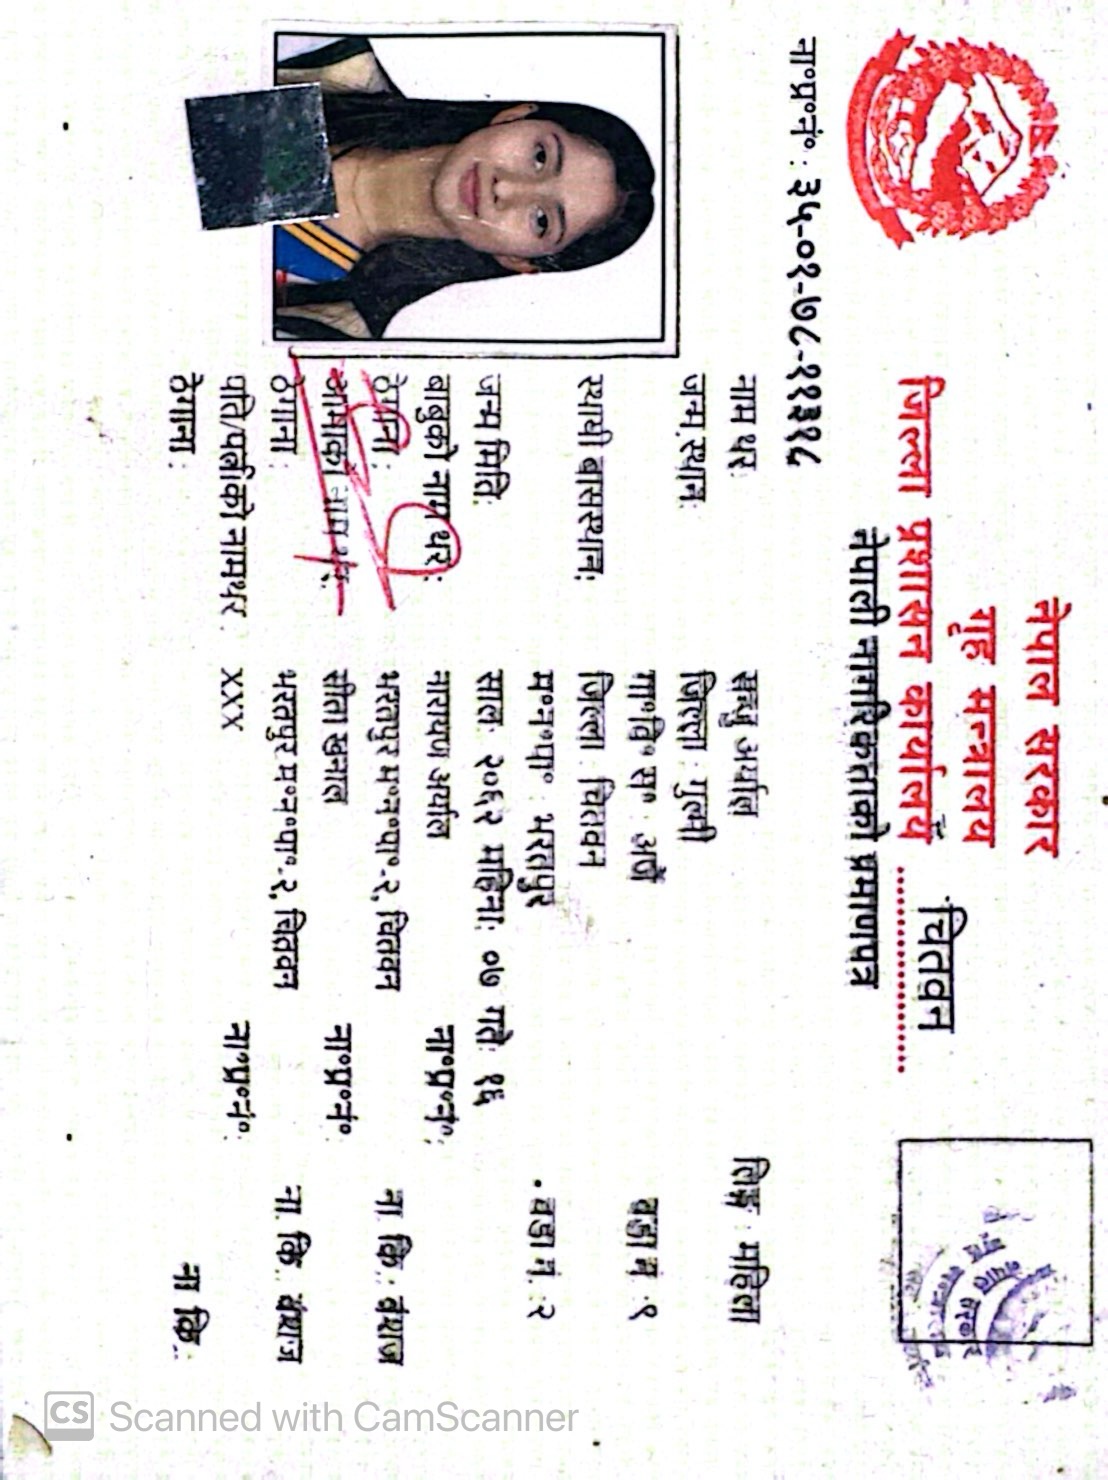 नेपाल सरकार
गृह मन्त्रालय
जिल्ला प्रशासन कार्यालय, चितवन
नेपाली नागरिकताको प्रमाणपत्र
ना॰प्र॰नं॰ : ३५-०१-७८-११३१८
नाम थर: सन्धु अर्याल लिङ्ग : महिला
जन्म स्थान: जिल्ला : गुल्मी
गा॰वि॰ स॰ : वडा नं : १
स्थायी बासस्थान: जिल्ला : चितवन
म॰न॰पा॰ : भरतपुर वडा नं. : २
जन्म मिति: साल: २०६२ महिना: ०७ गते: १६
बाबुको नाम थर: नारायण अर्याल ना॰प्र॰नं॰:
ठेगाना: भरतपुर म॰न॰पा॰-२, चितवन ना. कि. : वंशज
आमाको नाम थर: सीता खनाल ना॰प्र॰नं॰
ठेगाना: भरतपुर म॰न॰पा॰-२, चितवन ना. कि. : वंशज
पति/पत्नीको नामथर : XXX ना॰प्र॰नं॰:
ठेगाना: ना कि. :
CS Scanned with CamScanner